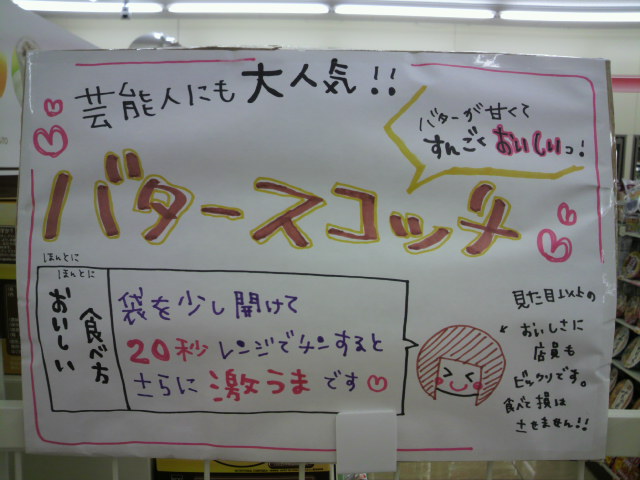 芸能人にも大人気!!
バターが甘くて
すんごくおいしいっ!
バタースコッチ
ほんとに
ほんとに
おいしい
食べ方
袋を少し開けて
20秒レンジでチンすると
さらに激うまです♡
見た目以上の
おいしさに
店員も
ビックリです。
食べて損は
させません!!